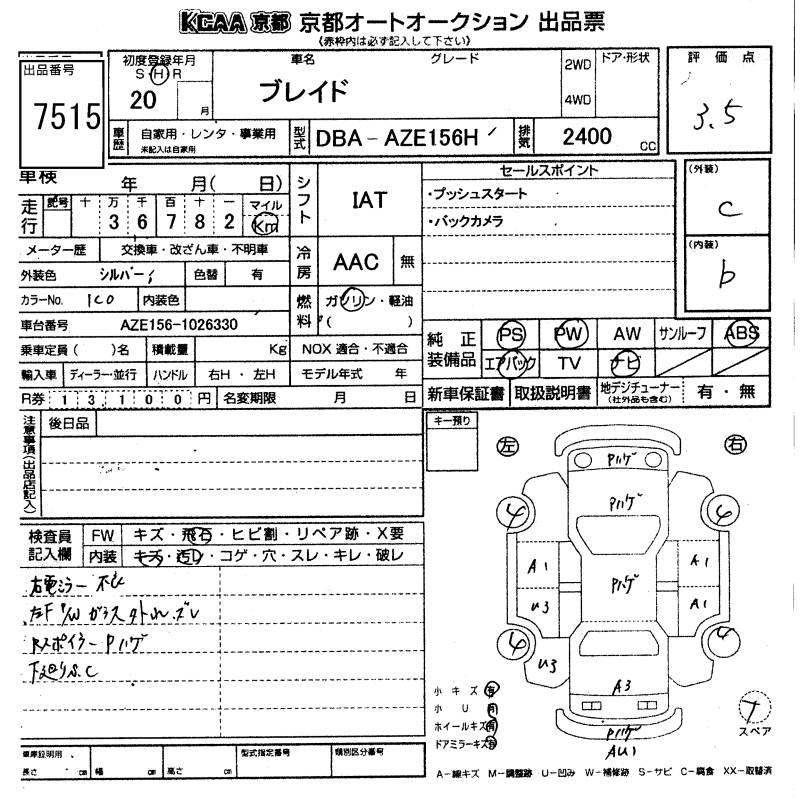 KCAA 京都 京都オートオークション 出品票
《赤枠内は必ず記入して下さい》
出品番号
7515
初度登録年月
S・H・R
20 月
車名 グレード
ブレイド
2WD
4WD
ドア・形状
評価点
3.5
車歴
自家用・レンタ・事業用
未記入は自家用
型式
DBA-AZE156H
排気
2400 CC
車検 年 月( 日)
走行
記号 十 万 千 百 十 一 マイル
3 6 7 8 2 Km
メーター歴 交換車・改ざん車・不明車
外装色 シルバー 色替 有
カラーNo. 1C0 内装色
車台番号 AZE156-1026330
乗車定員( )名 積載量 Kg NOX 適合・不適合
輸入車 ディーラー・並行 ハンドル 右H・左H モデル年式 年
R券 13100円 名変期限 月 日
シフト
IAT
冷房
AAC 無
燃料
ガソリン・軽油
( )
セールスポイント
・プッシュスタート
・バックカメラ
(外装)
C
(内装)
b
純正装備品
PS PW AW サンルーフ ABS
エアバック TV ナビ
新車保証書 取扱説明書 地デジチューナー
(社外品も含む)
有・無
注意事項(出品店記入)
後日品
キー預り
左 右
検査員記入欄
FW キズ・飛石・ヒビ割・リペア跡・X要
内装 キズ・汚れ・コゲ・穴・スレ・キレ・破レ
右電ミラー 不心
左F P/W ガラス外れ.ズレ
Rスポイラー Pハゲ
下廻りS.C
Pハゲ
Pハゲ
4 4
A1 A1
Pハゲ
U3 A1
4 4
U3
A3
Pハゲ
AU1
小キズ 有
小U 有
ホイールキズ 有
ドアミラーキズ 有
スペア
車庫証明用
長さ cm 幅 cm 高さ cm
型式指定番号
類別区分番号
A-線キズ M-調整跡 U-凹み W-補修跡 S-サビ C-腐食 XX-取替済